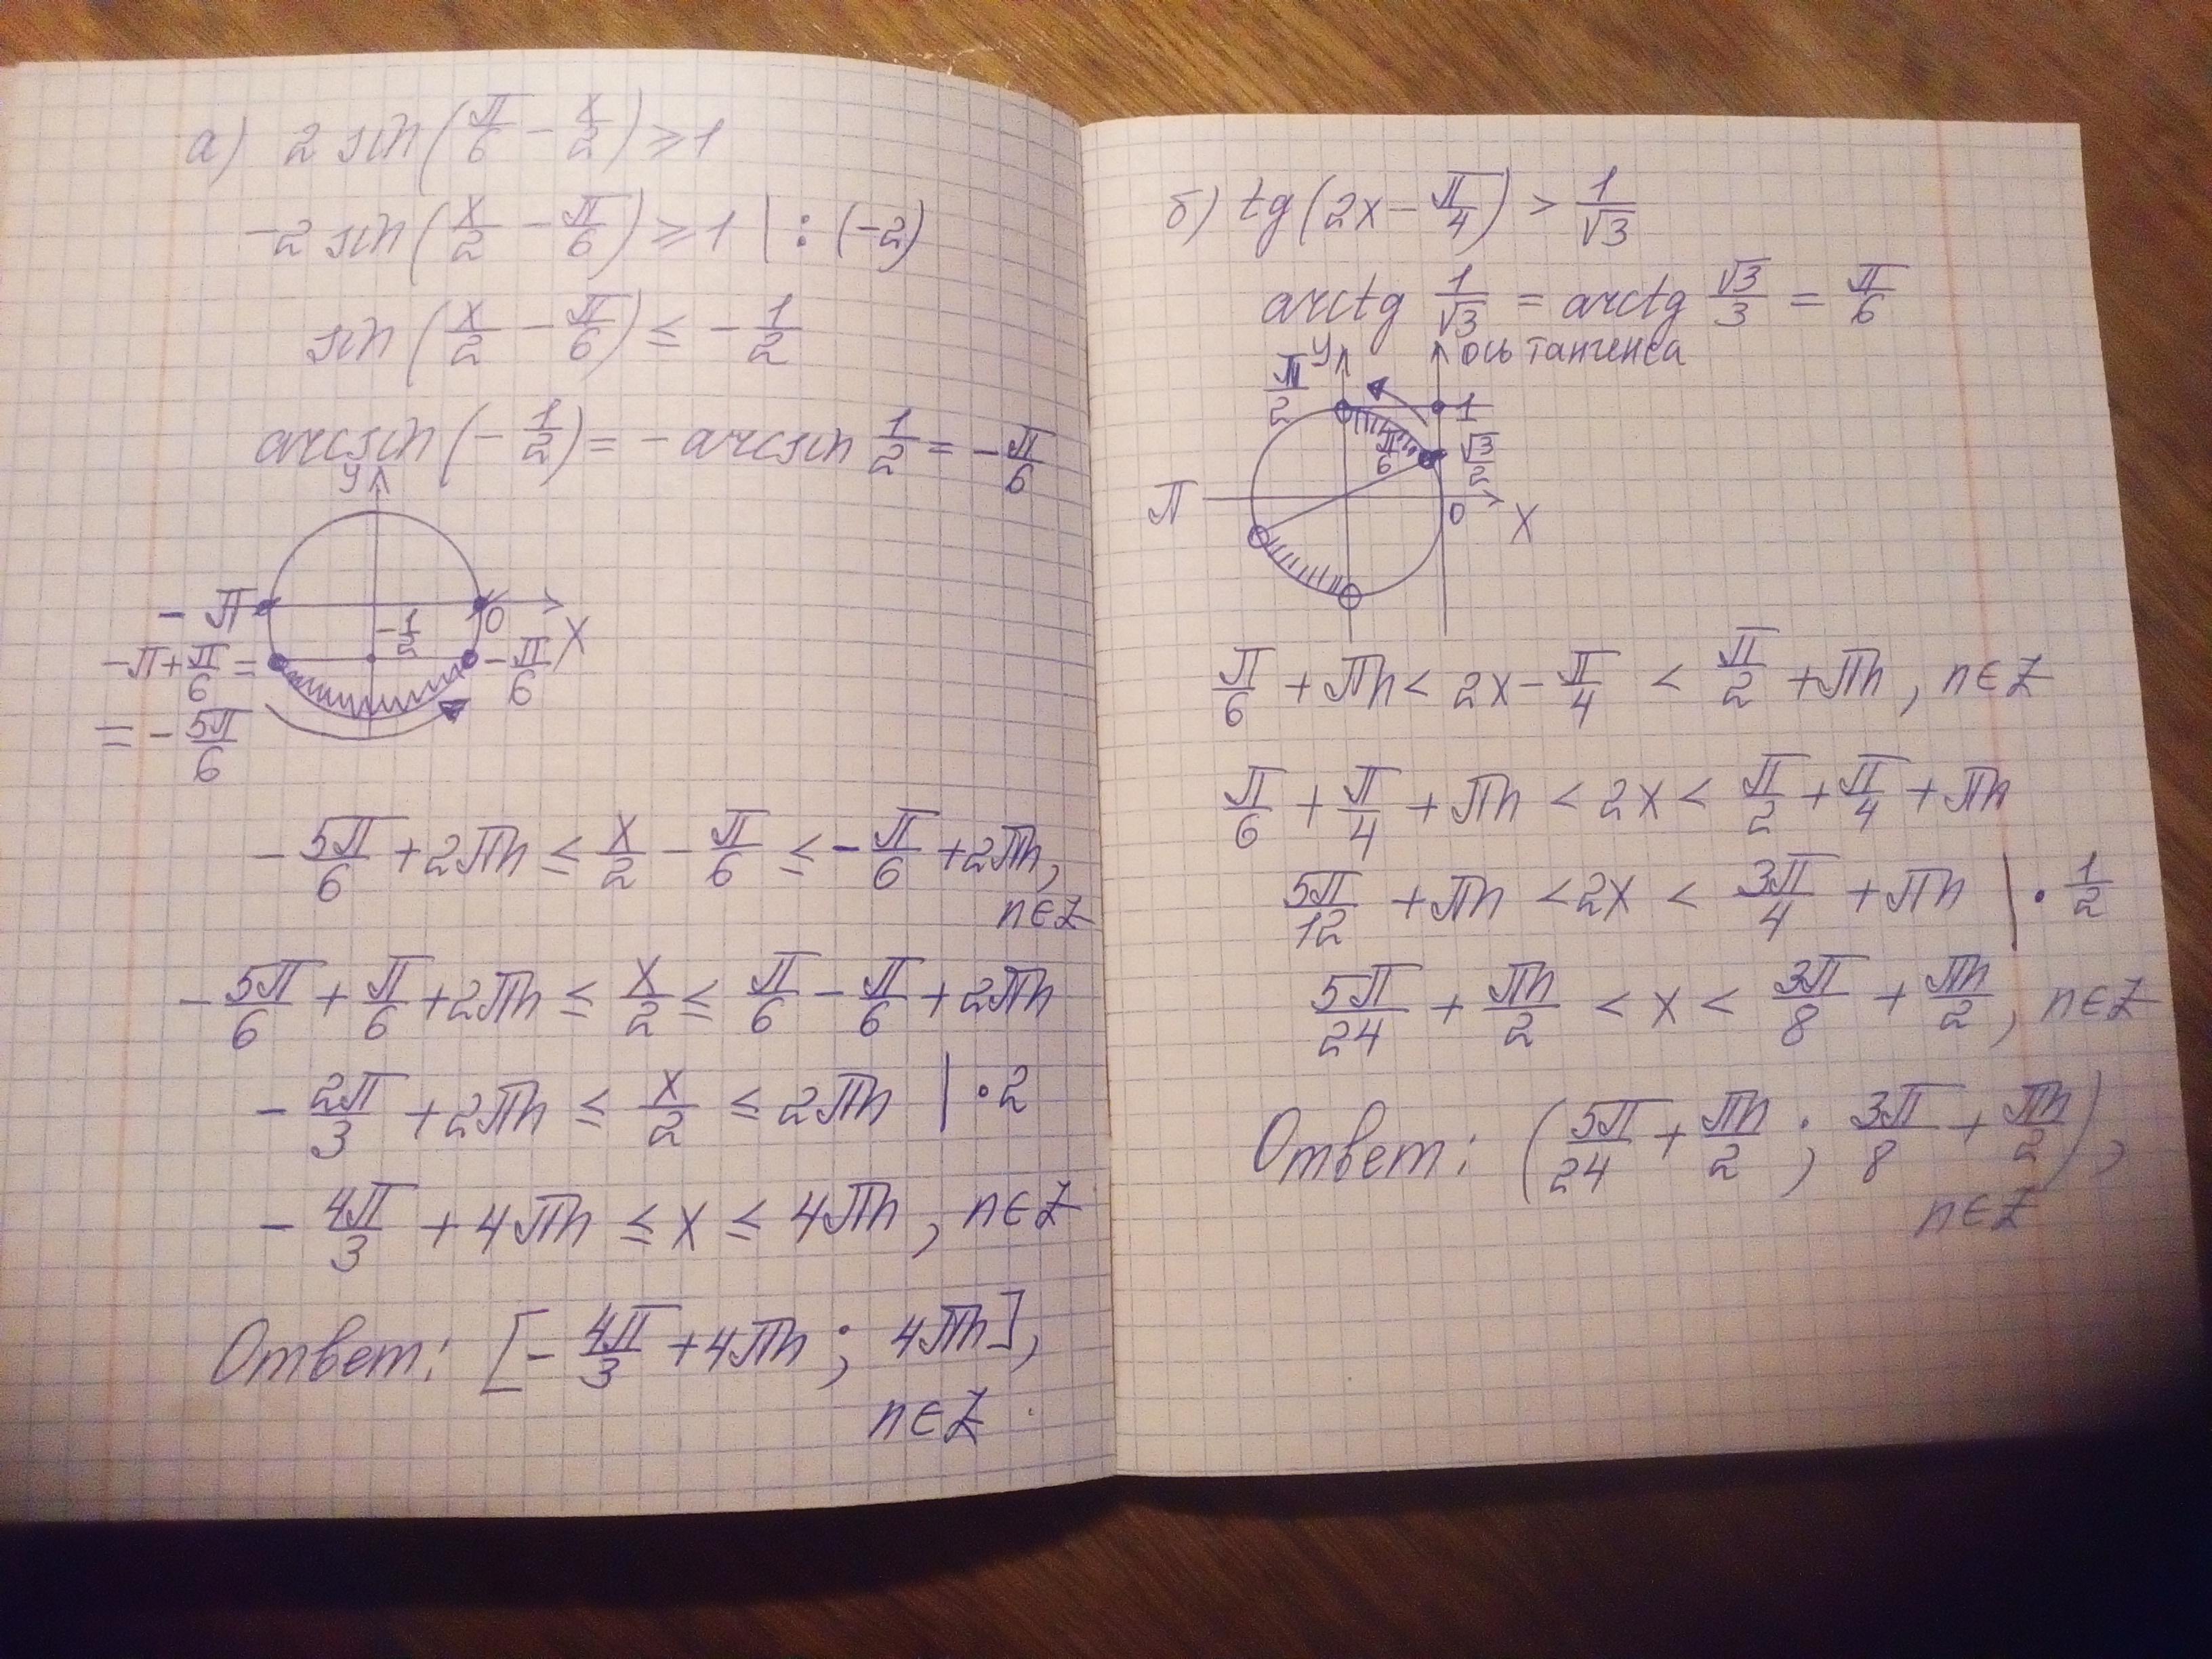 а) 2 sin(π/6 − x/2) ≥ 1
−2 sin(x/2 − π/6) ≥ 1 | : (−2)
sin(x/2 − π/6) ≤ −1/2
arcsin(−1/2) = −arcsin 1/2 = −π/6
y
−π
0
x
−1/2
−π + π/6 =
= −5π/6
−π/6
−5π/6 + 2πn ≤ x/2 − π/6 ≤ −π/6 + 2πn,
n∈Z
−5π/6 + π/6 + 2πn ≤ x/2 ≤ π/6 − π/6 + 2πn
−2π/3 + 2πn ≤ x/2 ≤ 2πn | · 2
−4π/3 + 4πn ≤ x ≤ 4πn, n∈Z
Ответ: [−4π/3 + 4πn; 4πn],
n∈Z
б) tg(2x − π/4) > 1/√3
arctg 1/√3 = arctg √3/3 = π/6
y
ось тангенса
π/2
1
π/6
√3/2
π
0
x
π/6 + πn < 2x − π/4 < π/2 + πn, n∈Z
π/6 + π/4 + πn < 2x < π/2 + π/4 + πn
5π/12 + πn < 2x < 3π/4 + πn | · 1/2
5π/24 + πn/2 < x < 3π/8 + πn/2, n∈Z
Ответ: (5π/24 + πn/2; 3π/8 + πn/2),
n∈Z